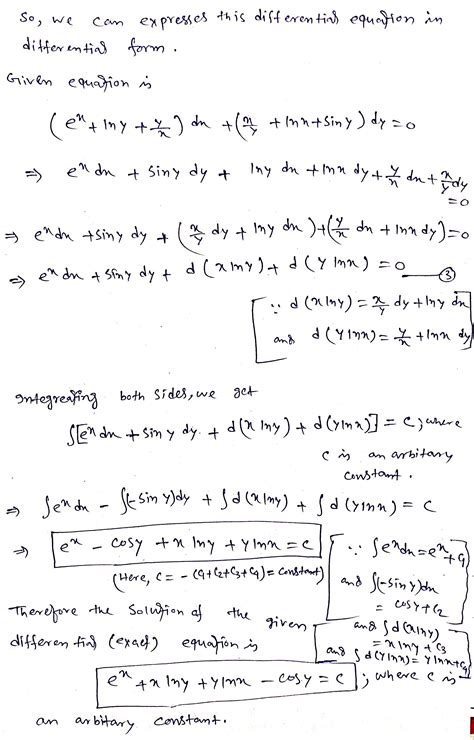 So, we can expresses this differential equation in
differential form.
Given equation is
(e^x + lny + y/x) dx + (x/y + lnx + siny) dy = 0
⇒ e^x dx + siny dy + lny dx + lnx dy + y/x dx + x/y dy = 0
⇒ e^x dx + siny dy + (x/y dy + lny dx) + (y/x dx + lnx dy) = 0
⇒ e^x dx + siny dy + d(x lny) + d(y lnx) = 0 — ③
[∵ d(x lny) = x/y dy + lny dx
and d(y lnx) = y/x + lnx dy]
Integreating both sides, we get
∫[e^x dx + sin y dy + d(x lny) + d(y lnx)] = C; where
C is an arbitary
constant.
⇒ ∫e^x dx - ∫(-sin y) dy + ∫d(x lny) + ∫d(y lnx) = C
⇒ e^x - cosy + x lny + y lnx = C
(Here, C = -(C1+C2+C3+C4) = constant)
[∵ ∫e^x dx = e^x + C1
and ∫(-sin y) dx
= cosy + C2
and ∫d(x lny)
= x lny + C3
and ∫d(y lnx) = y lnx + C4]
Therefore the solution of the given
differential (exact) equation is
e^x + x lny + y lnx - cosy = C ; where C is
an arbitary constant.